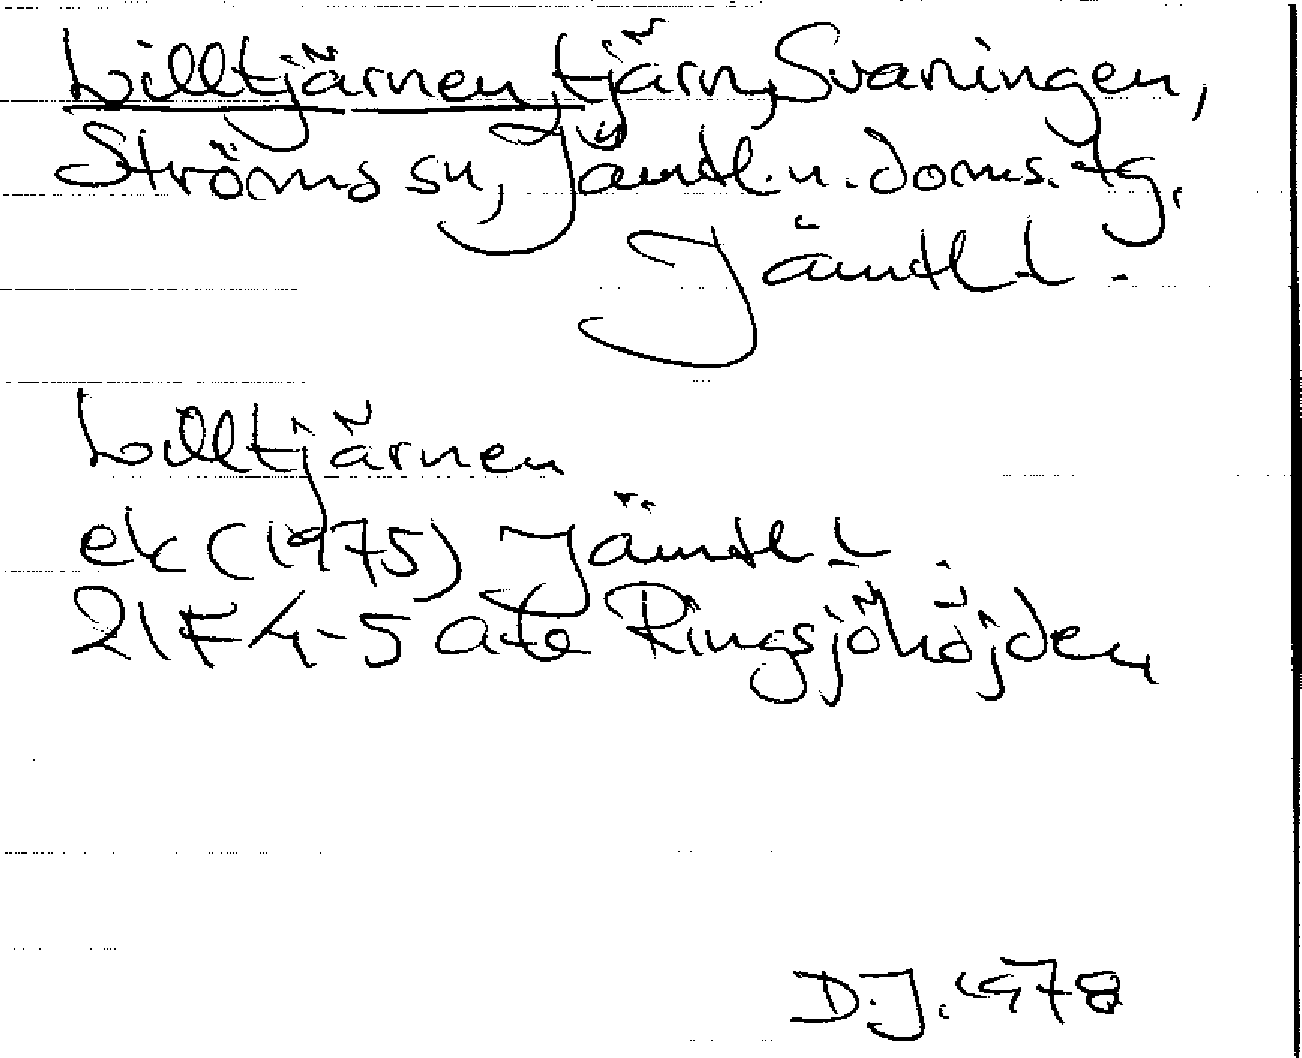 Lilltjärnen, tjärn, Svaningen,
Ströms sn, Jämtl. n. doms. tg.
Jämtl. l.
Lilltjärnen
ek (1975) Jämtl. l.
21F 4-5 a-e Ringsjöhöjden
D.J. 1978